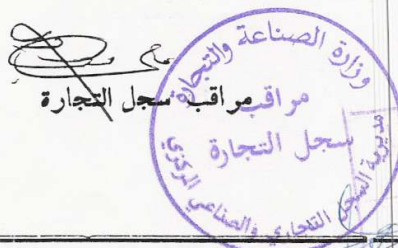 مراقب سجل التجارة
وزارة الصناعة والتجارة
مراقب
سجل التجارة
مديرية السجل التجاري والصناعي المركزي